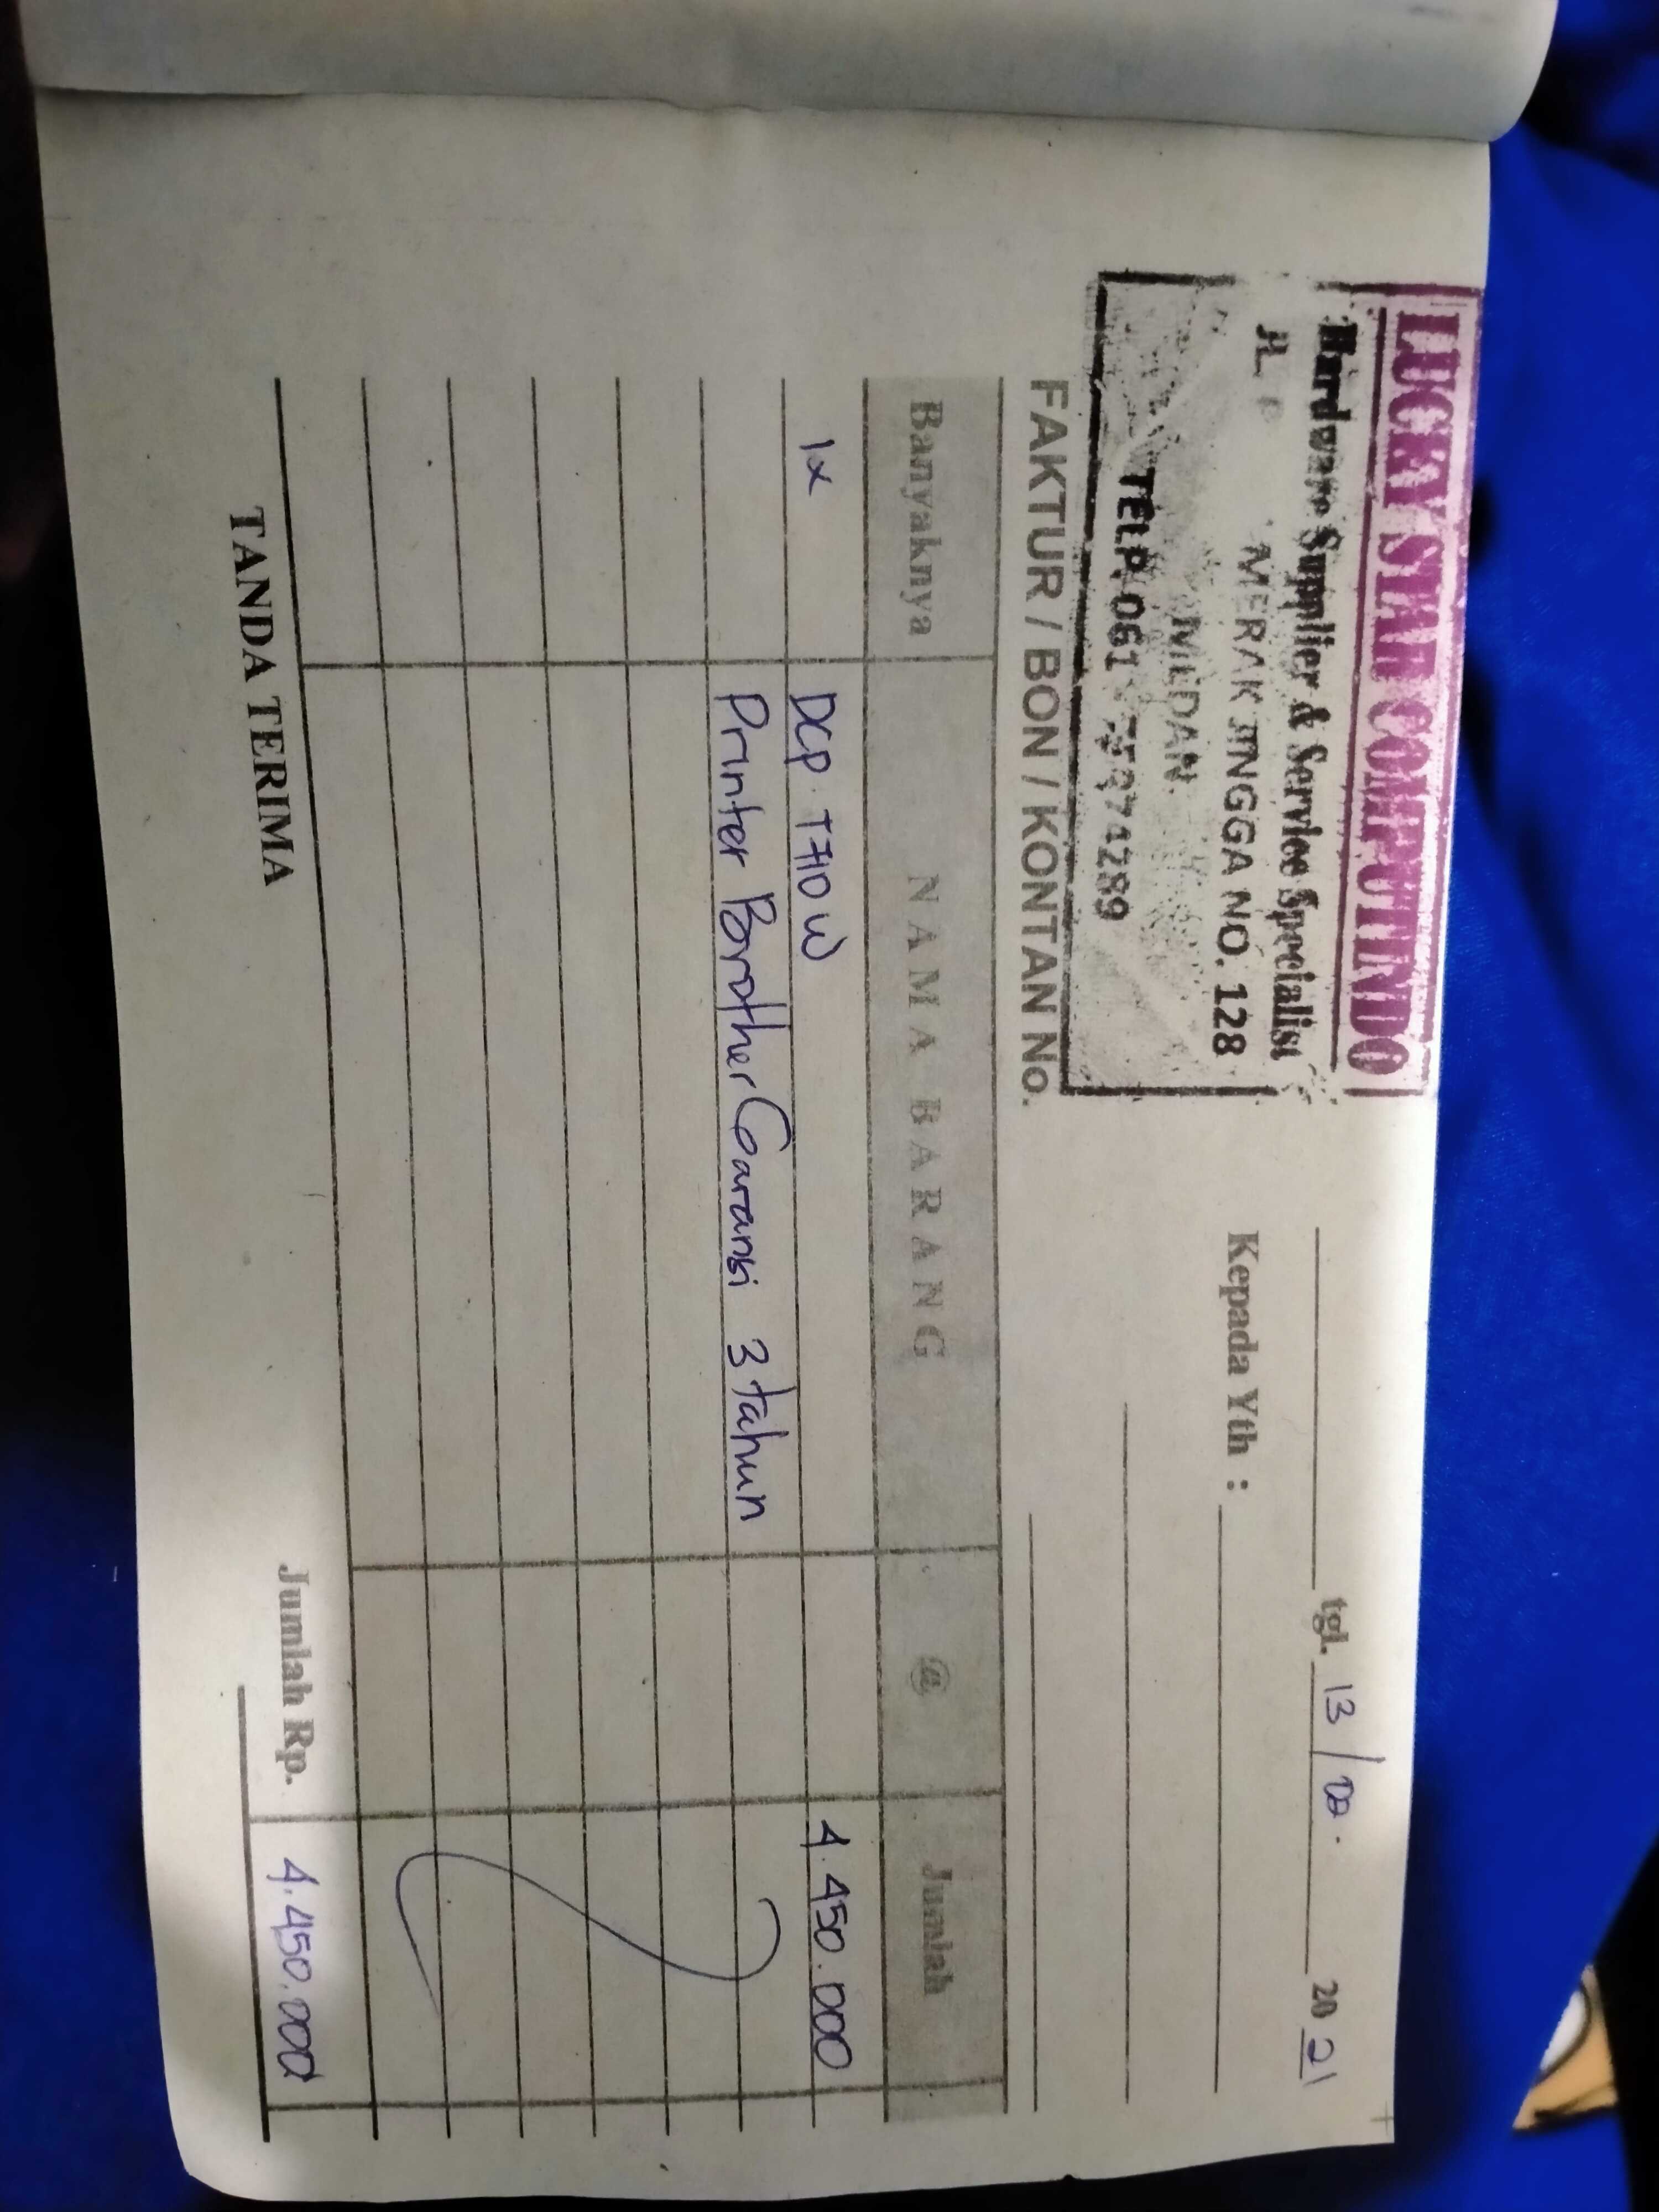 LUCKY STAR COMPUTINDO
Hardware Supplier & Service Specialist
JL. P MERAK JINGGA NO. 128
MEDAN.
TELP. 061 4289
FAKTUR / BON / KONTAN No.
tgl. 13 / 20 21
Kepada Yth :
Banyaknya NAMA BARANG @ Jumlah
1x DCP T710W 4.450.000
Printer Brother Garansi 3 tahun
TANDA TERIMA Jumlah Rp. 4.450.000